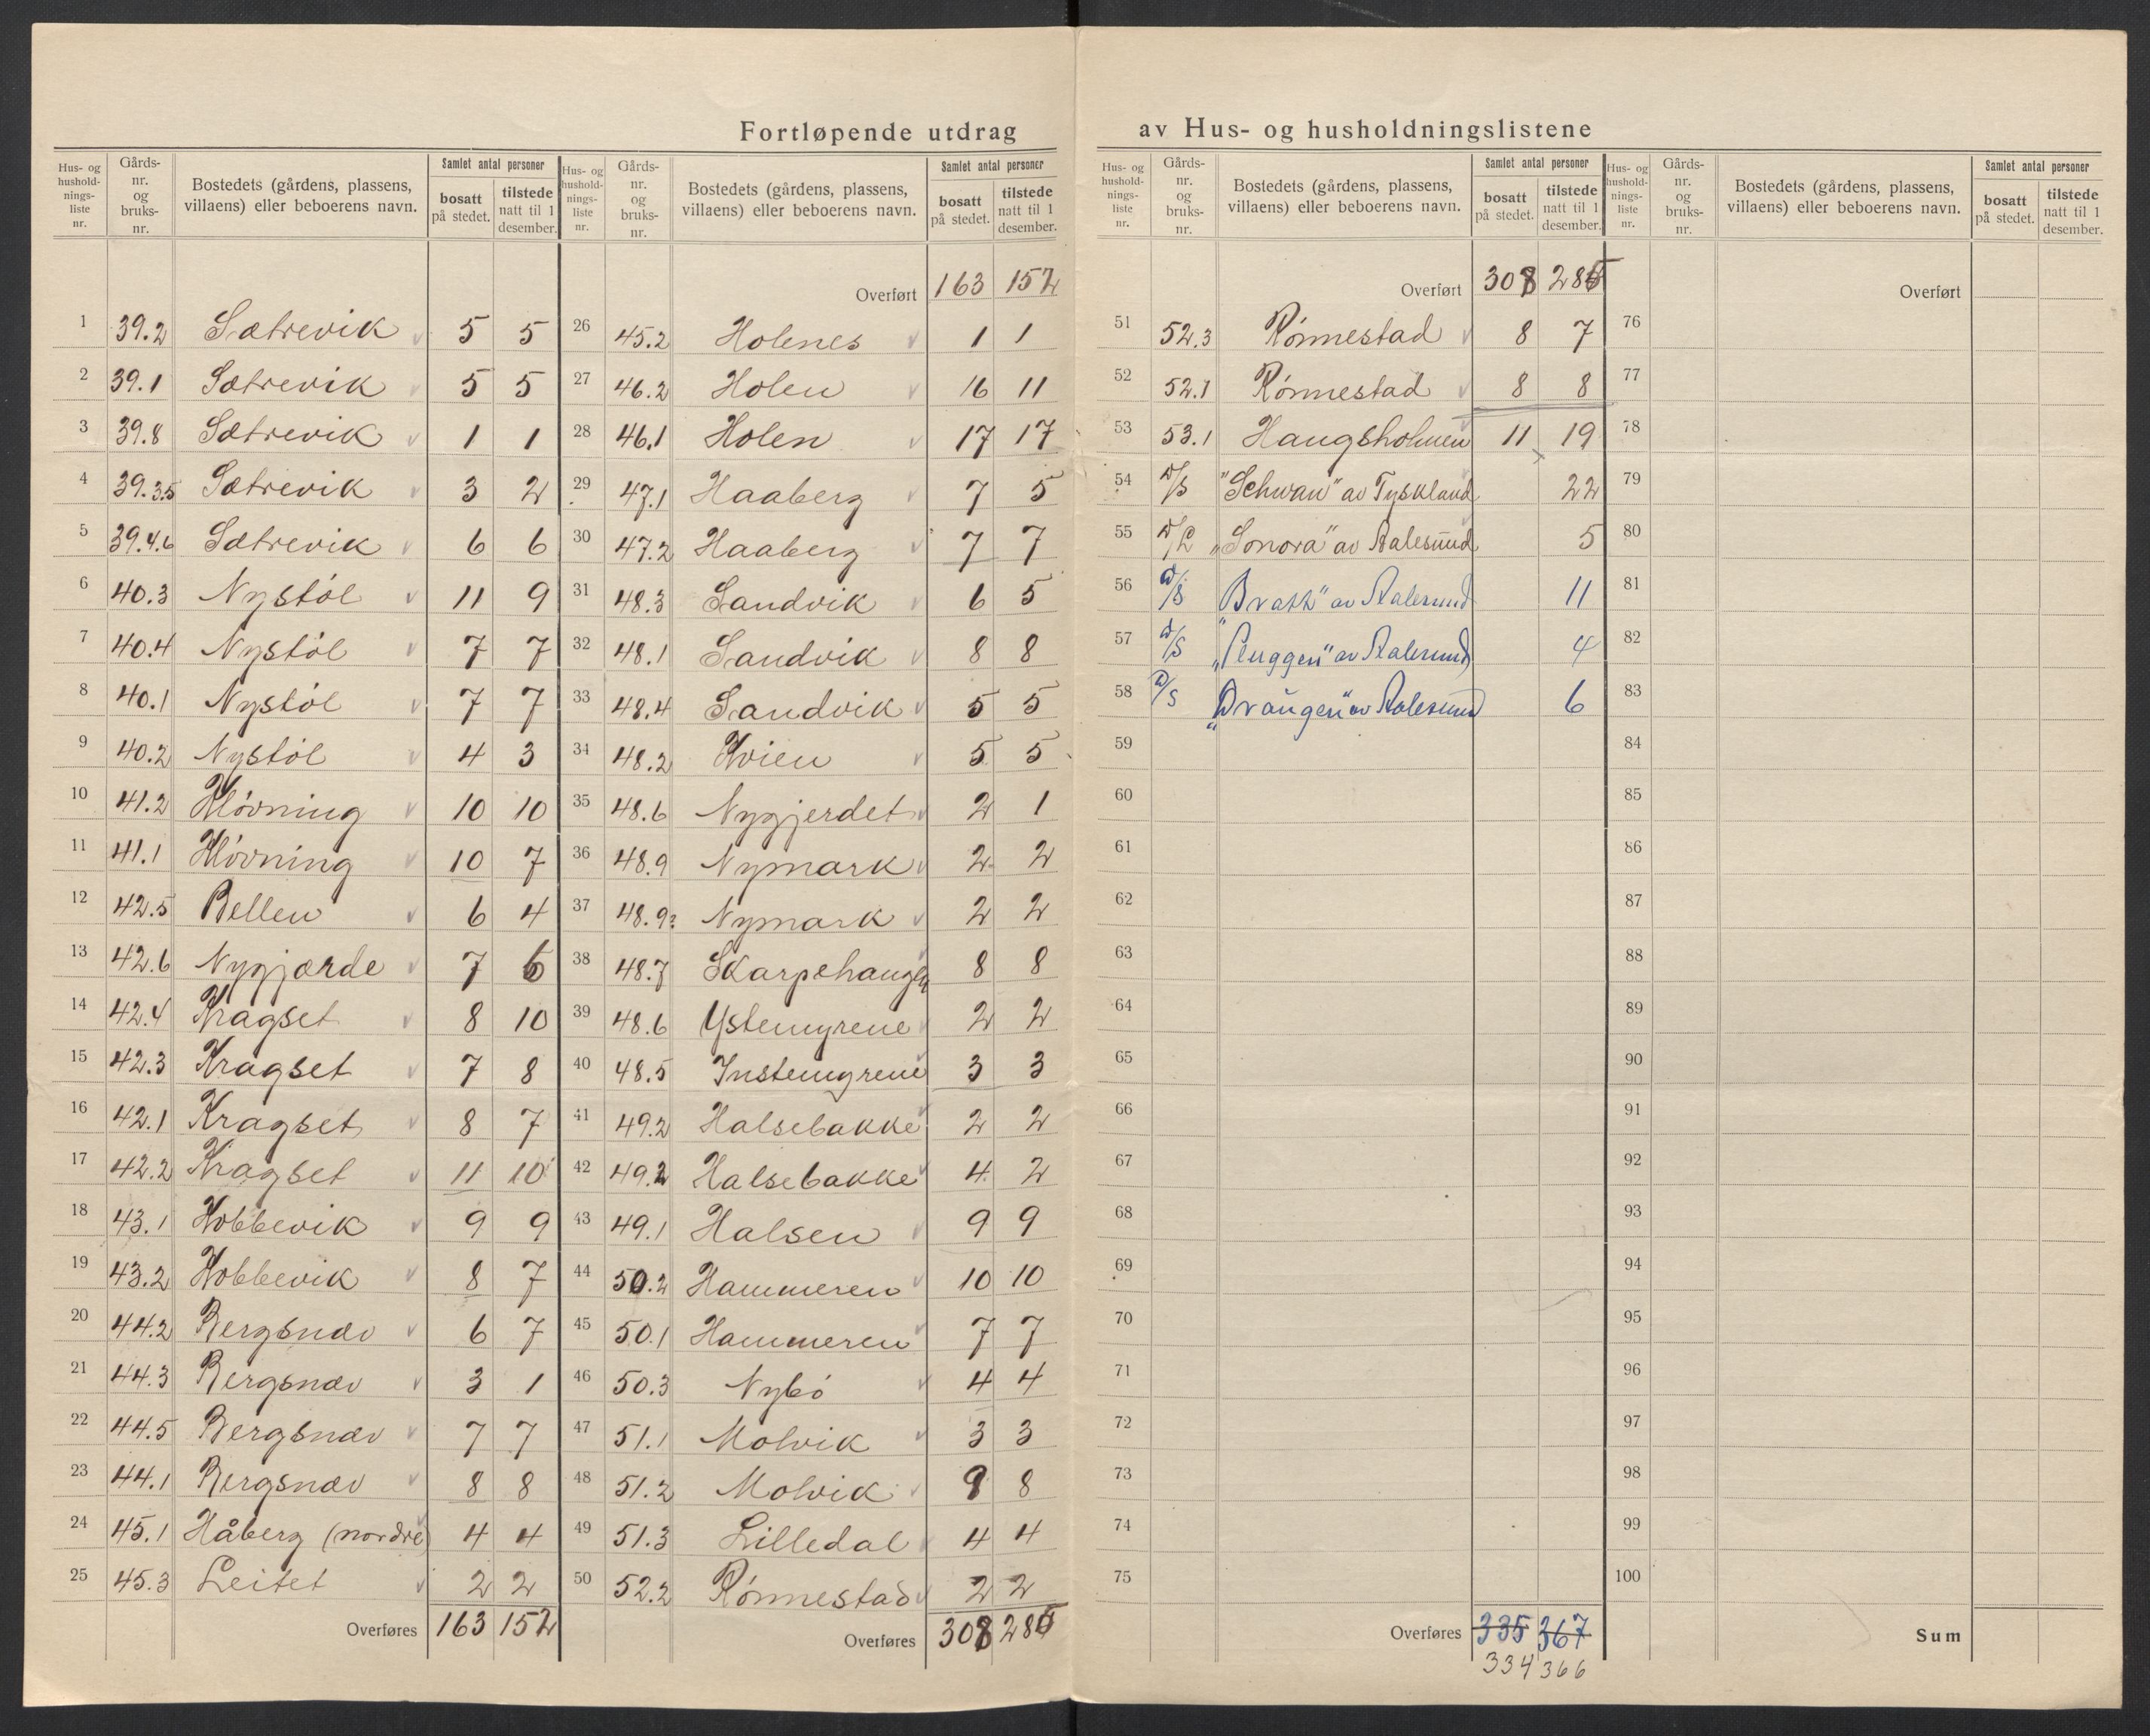 Fortløpende utdrag av Hus- og husholdningslistene
Hus- og husholdnings-liste nr. Gårds-nr. og bruks-nr. Bostedets (gårdens, plassens, villaens) eller beboerens navn. Samlet antal personer bosatt på stedet. tilstede natt til 1 desember.
1 39.2 Sætrevik 5 5
2 39.1 Sætrevik 5 5
3 39.8 Sætrevik 1 1
4 39.3.5 Sætrevik 3 2
5 39.4.6 Sætrevik 6 6
6 40.3 Nystöl 11 9
7 40.4 Nystöl 7 7
8 40.1 Nystöl 7 7
9 40.2 Nystöl 4 3
10 41.2 Klövning 10 10
11 41.1 Klövning 10 7
12 42.5 Bellen 6 4
13 42.6 Nygjærde 7 6
14 42.4 Kragset 8 10
15 42.3 Kragset 7 8
16 42.1 Kragset 8 7
17 42.2 Kragset 11 10
18 43.1 Hobbevik 9 9
19 43.2 Hobbevik 8 7
20 44.2 Bergsnæv 6 7
21 44.3 Bergsnæv 3 1
22 44.5 Bergsnæv 7 7
23 44.1 Bergsnæv 8 8
24 45.1 Håberg (nordre) 4 4
25 45.3 Leitet 2 2
Overføres 163 152
Hus- og husholdnings-liste nr. Gårds-nr. og bruks-nr. Bostedets (gårdens, plassens, villaens) eller beboerens navn. Samlet antal personer bosatt på stedet. tilstede natt til 1 desember.
Overført 163 152
26 45.2 Holenes 1 1
27 46.2 Holen 16 11
28 46.1 Holen 17 17
29 47.1 Haaberg 7 5
30 47.2 Haaberg 7 7
31 48.3 Sandvik 6 5
32 48.1 Sandvik 8 8
33 48.4 Sandvik 5 5
34 48.2 Kvien 5 5
35 48.6 Nygjerdet 2 1
36 48.9 Nymark 2 2
37 48.9? Nymark 2 2
38 48.7 Skarpehaugen 8 8
39 48.6 Ystemyrene 2 2
40 48.5 Instemyrene 3 3
41 49.2 Halsebakke 2 2
42 49.2 Halsebakke 4 2
43 49.1 Halsen 9 9
44 50.2 Hammeren 10 10
45 50.1 Hammeren 7 7
46 50.3 Nybö 4 4
47 51.1 Molvik 3 3
48 51.2 Molvik 9 8
49 51.3 Lilledal 4 4
50 52.2 Rönnestad 2 2
Overføres 308 285
Hus- og husholdnings-liste nr. Gårds-nr. og bruks-nr. Bostedets (gårdens, plassens, villaens) eller beboerens navn. Samlet antal personer bosatt på stedet. tilstede natt til 1 desember.
Overført 308 285
51 52.3 Rönnestad 8 7
52 52.1 Rönnestad 8 8
53 53.1 Haugsholmen 11 19
54 D/S "Schwan" av Tyskland 22
55 "Sonora" av Aalesund 5
56 D/S av Aalesund 11
57 D/S av Aalesund 4
58 D/S "Drangen" av Aalesund 6
59
60
61
62
63
64
65
66
67
68
69
70
71
72
73
74
75
Overføres 335 367
334 366
Hus- og husholdnings-liste nr. Gårds-nr. og bruks-nr. Bostedets (gårdens, plassens, villaens) eller beboerens navn. Samlet antal personer bosatt på stedet. tilstede natt til 1 desember.
Overført
76
77
78
79
80
81
82
83
84
85
86
87
88
89
90
91
92
93
94
95
96
97
98
99
100
Sum